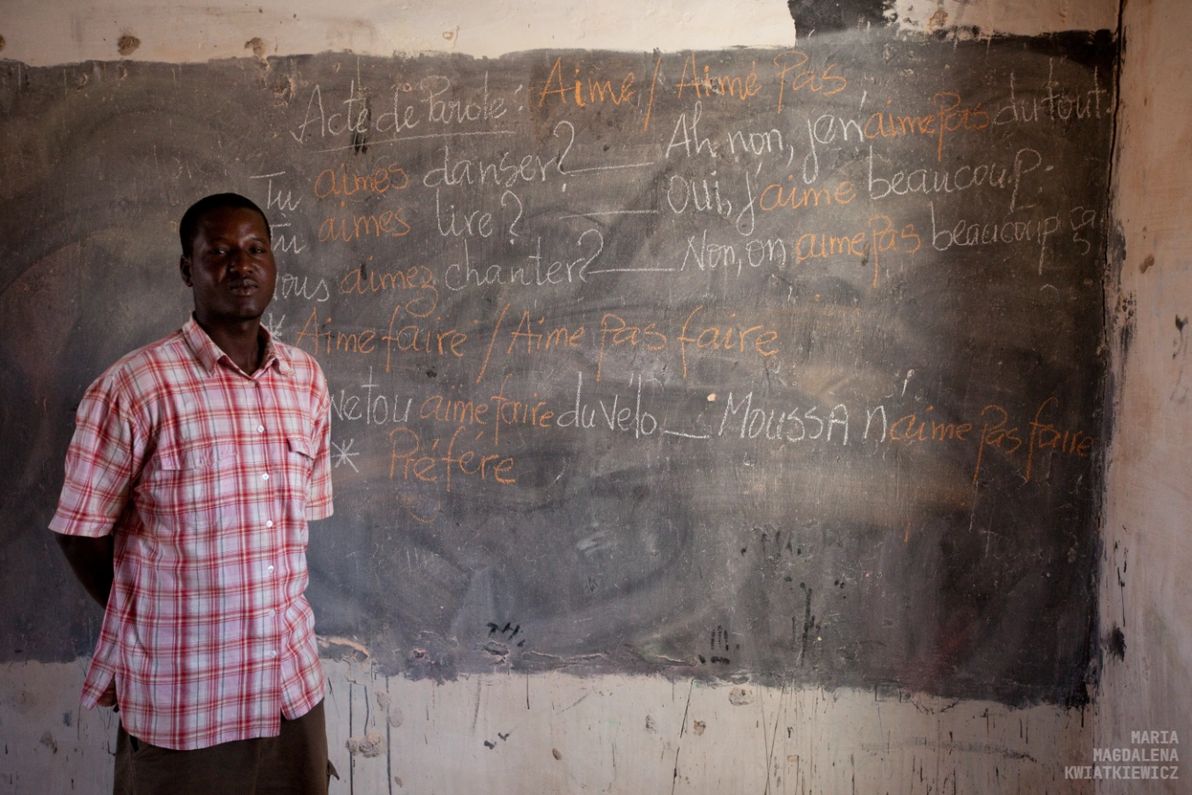 Acte de Parole: Aime / Aime Pas
Tu aimes danser? — Ah, non, je n'aime Pas du tout.
Tu aimes lire? — oui, j'aime beaucoup.
ous aimez chanter? — Non, on aime Pas beaucoup ça
* Aime faire / Aime Pas faire
netou aime faire du vélo — Moussa n'aime Pas faire
* Préfére
MARIA
MAGDALENA
KWIATKIEWICZ